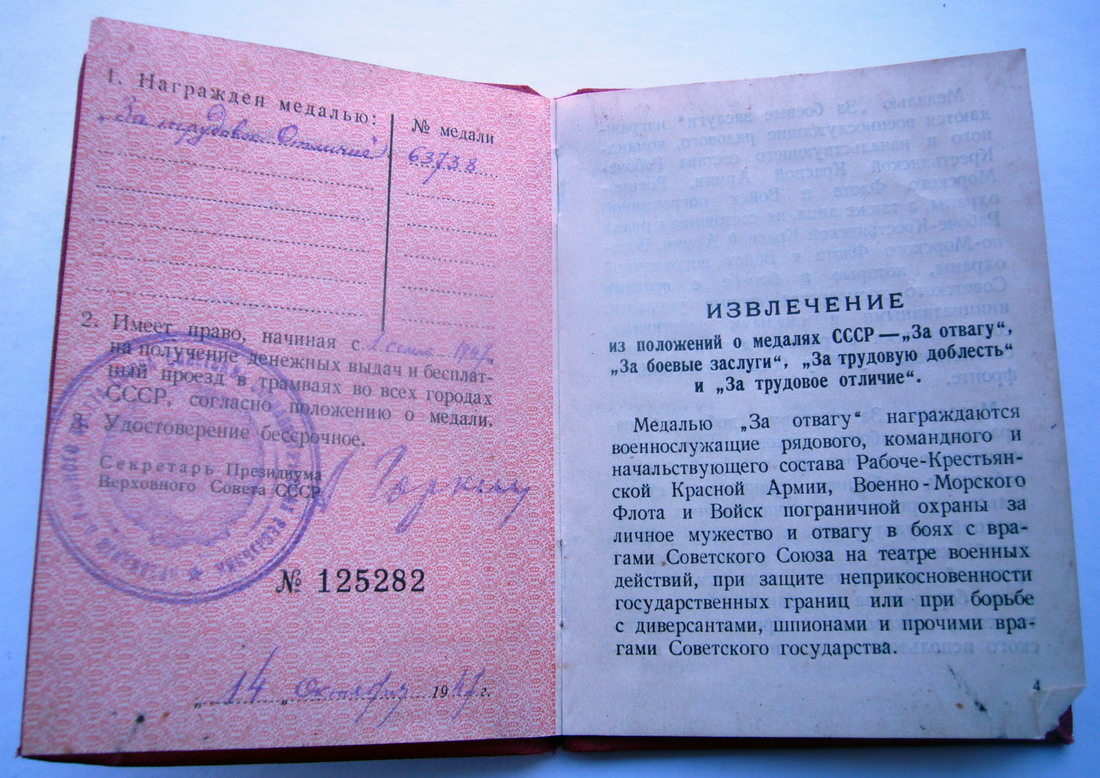 1. Награжден медалью:
№ медали
„За трудовое Отличие“
63738
2. Имеет право, начиная с 1
на получение денежных выдач и бесплат-
ный проезд в трамваях во всех городах
СССР, согласно положению о медали.
3. Удостоверение бессрочное.
Секретарь Президиума
Верховного Совета СССР
№ 125282
„14 „ Октября 1947 г.
ИЗВЛЕЧЕНИЕ
из положений о медалях СССР—„За отвагу“,
„За боевые заслуги“, „За трудовую доблесть“
и „За трудовое отличие“.
Медалью „За отвагу“ награждаются
военнослужащие рядового, командного и
начальствующего состава Рабоче-Крестьян-
ской Красной Армии, Военно-Морского
Флота и Войск пограничной охраны за
личное мужество и отвагу в боях с вра-
гами Советского Союза на театре военных
действий, при защите неприкосновенности
государственных границ или при борьбе
с диверсантами, шпионами и прочими вра-
гами Советского государства.
4